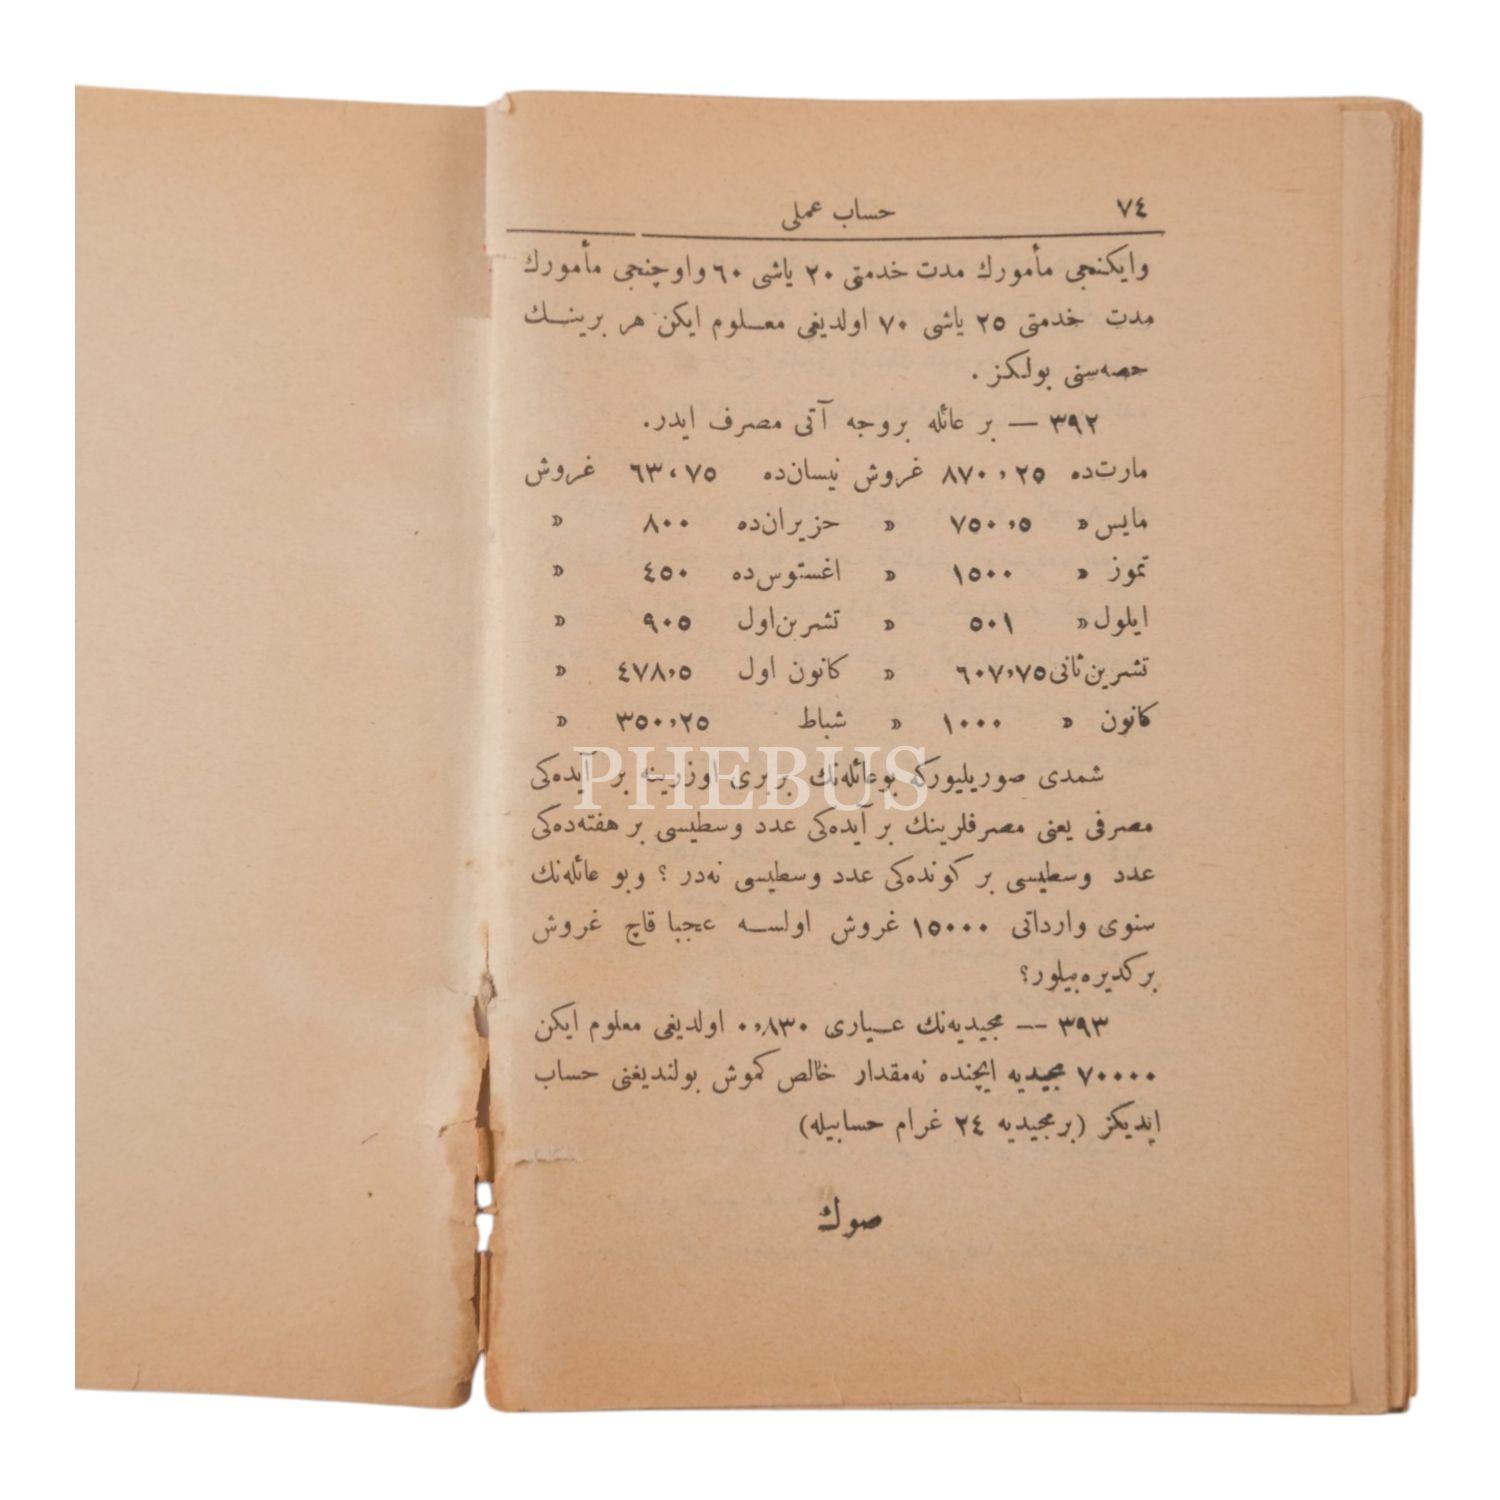 ٧٤ حساب عملی
وایكنجی مأمورك مدت خدمتی ٢٠ یاشی ٦٠ واوچنجی مأمورك
مدت خدمتی ٢٥ یاشی ٧٠ اولدیغی معلوم ایكن هر برینك
حصه‌سنی بولكز .
٣٩٢ — بر عائله بروجه آتی مصرف ایدر.
مارت‌ده ٨٧٠,٢٥ غروش نیسان‌ده ٦٣,٧٥ غروش
مایس » ٧٥٠,٥ » حزیران‌ده ٨٠٠ »
تموز » ١٥٠٠ » اغستوس‌ده ٤٥٠ »
ایلول » ٥٠١ » تشرین‌اول ٩٠٥ »
تشرین‌ثانی ٦٠٧,٧٥ » كانون اول ٤٧٨,٥ »
كانون » ١٠٠٠ » شباط ٣٥٠,٢٥ »
شمدی صوریلیوركه بوعائله‌نك بربری اوزرینه بر آیده‌كی
مصرفی یعنی مصرفلرینك بر آیده‌كی عدد وسطیسی بر هفته‌ده‌كی
عدد وسطیسی بر كونده‌كی عدد وسطیسی نه‌در ؟ وبو عائله‌نك
سنوی وارداتی ١٥٠٠٠ غروش اولسه عجبا قاچ غروش
بركدیره‌بیلور؟
٣٩٣ — مجیدیه‌نك عیاری ٠,٨٣٠ اولدیغی معلوم ایكن
٧٠٠٠٠ مجیدیه ایچنده نه‌مقدار خالص كموش بولندیغنی حساب
ایدیكز (بر مجیدیه ٢٤ غرام حسابیله)
صوك
PHEBUS